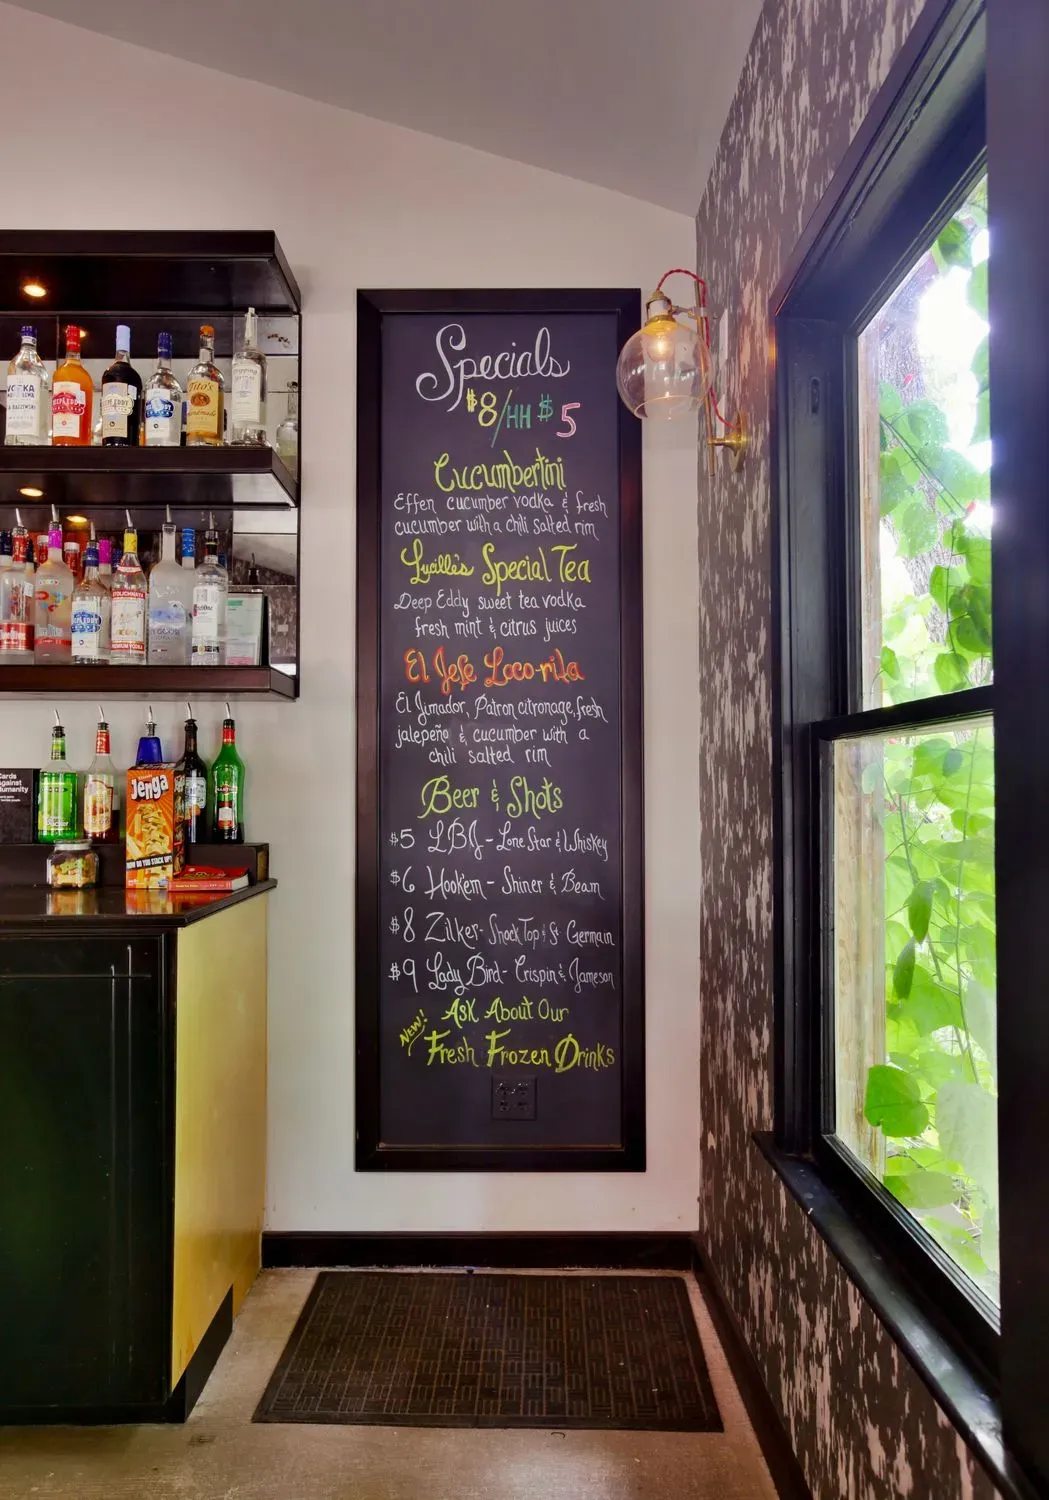 Specials
$8/HH $5
Cucumbertini
Effen cucumber vodka & fresh
cucumber with a chili salted rim
Lucille's Special Tea
Deep Eddy sweet tea vodka
fresh mint & citrus juices
El Jefe Loco-rita
El Jimador, Patron citronage, fresh
jalepeño & cucumber with a
chili salted rim
Beer & Shots
$5 LBJ - Lone Star & Whiskey
$6 Hook'em - Shiner & Beam
$8 Zilker - Shock Top & St Germain
$9 Lady Bird - Crispin & Jameson
NEW! Ask About Our
Fresh Frozen Drinks
VODKA
DEEP EDDY
DEEP EDDY
DEEP EDDY
Tito's
Handmade
STOLICHNAYA
PREMIUM VODKA
Cards
Against
Humanity
Jenga
HOW DO YOU STACK UP?